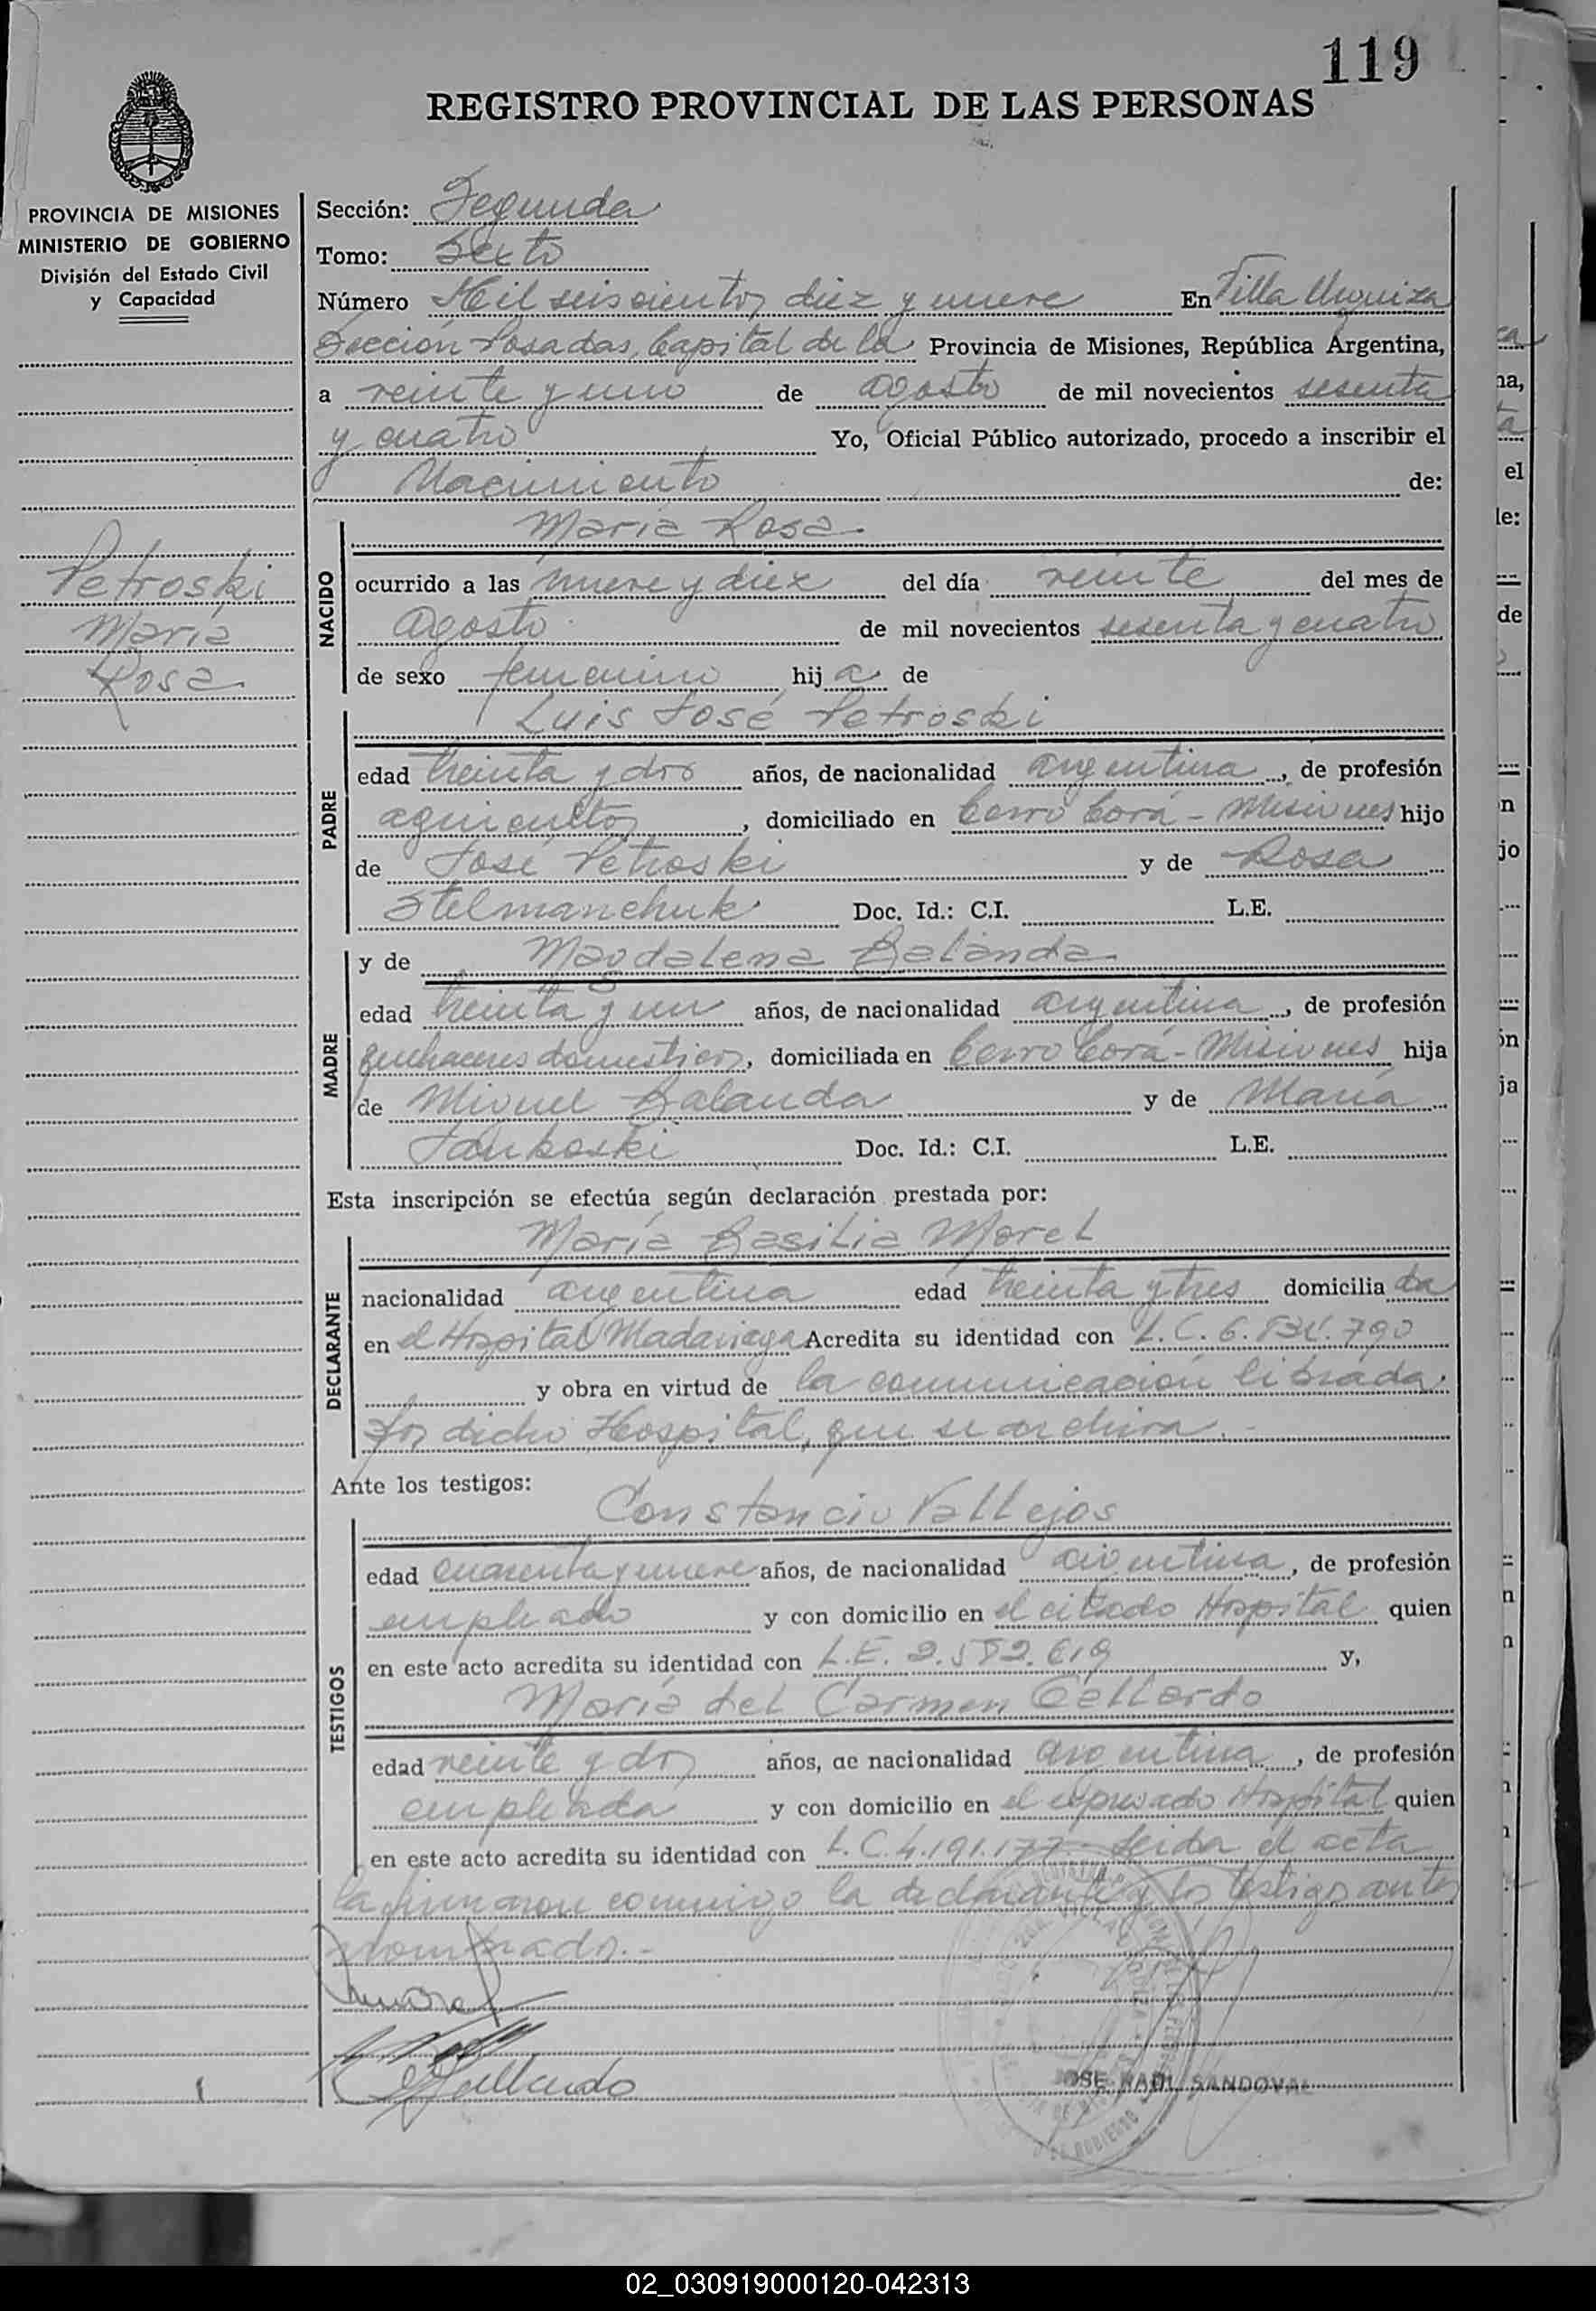 119
REGISTRO PROVINCIAL DE LAS PERSONAS
PROVINCIA DE MISIONES
MINISTERIO DE GOBIERNO
División del Estado Civil
y Capacidad
Petroski
María
Rosa
Sección: Segunda
Tomo: Sexto
Número Mil seiscientos diez y nueve En Villa Urquiza
Sección Posadas, Capital de la Provincia de Misiones, República Argentina,
a veinte y uno de agosto de mil novecientos sesenta
y cuatro Yo, Oficial Público autorizado, procedo a inscribir el
Nacimiento de:
María Rosa
NACIDO
ocurrido a las nueve y diez del día veinte del mes de
Agosto de mil novecientos sesenta y cuatro
de sexo femenino hija de
Luis José Petroski
PADRE
edad treinta y dos años, de nacionalidad argentina, de profesión
agricultor, domiciliado en Cerro Corá - Misiones hijo
de José Petroski y de Rosa
Stelmanchuk Doc. Id.: C.I. L.E.
y de Magdalena Balanda
MADRE
edad treinta y un años, de nacionalidad argentina, de profesión
quehaceres domesticos, domiciliada en Cerro Corá - Misiones hija
de Miguel Balanda y de María
Doc. Id.: C.I. L.E.
Esta inscripción se efectúa según declaración prestada por:
María Basilia Morel
DECLARANTE
nacionalidad argentina edad treinta y tres domiciliada
en el Hospital Madariaga Acredita su identidad con L.C. 6.
y obra en virtud de la comunicación librada
por dicho Hospital, que se archiva.-
Ante los testigos:
Constancio Vallejos
TESTIGOS
edad cuarenta y nueve años, de nacionalidad argentina, de profesión
empleado y con domicilio en el citado Hospital quien
en este acto acredita su identidad con L.E. 2.552.619 y,
María del Carmen Gallardo
edad veinte y dos años, de nacionalidad argentina, de profesión
empleada y con domicilio en el expresado Hospital quien
en este acto acredita su identidad con L.C. 4.191.177- Leída el acta
la firmaron conmigo la declarante y los testigos antes
nombrados.-
Gallardo
JOSE RAUL SANDOVAL
02_030919000120-042313